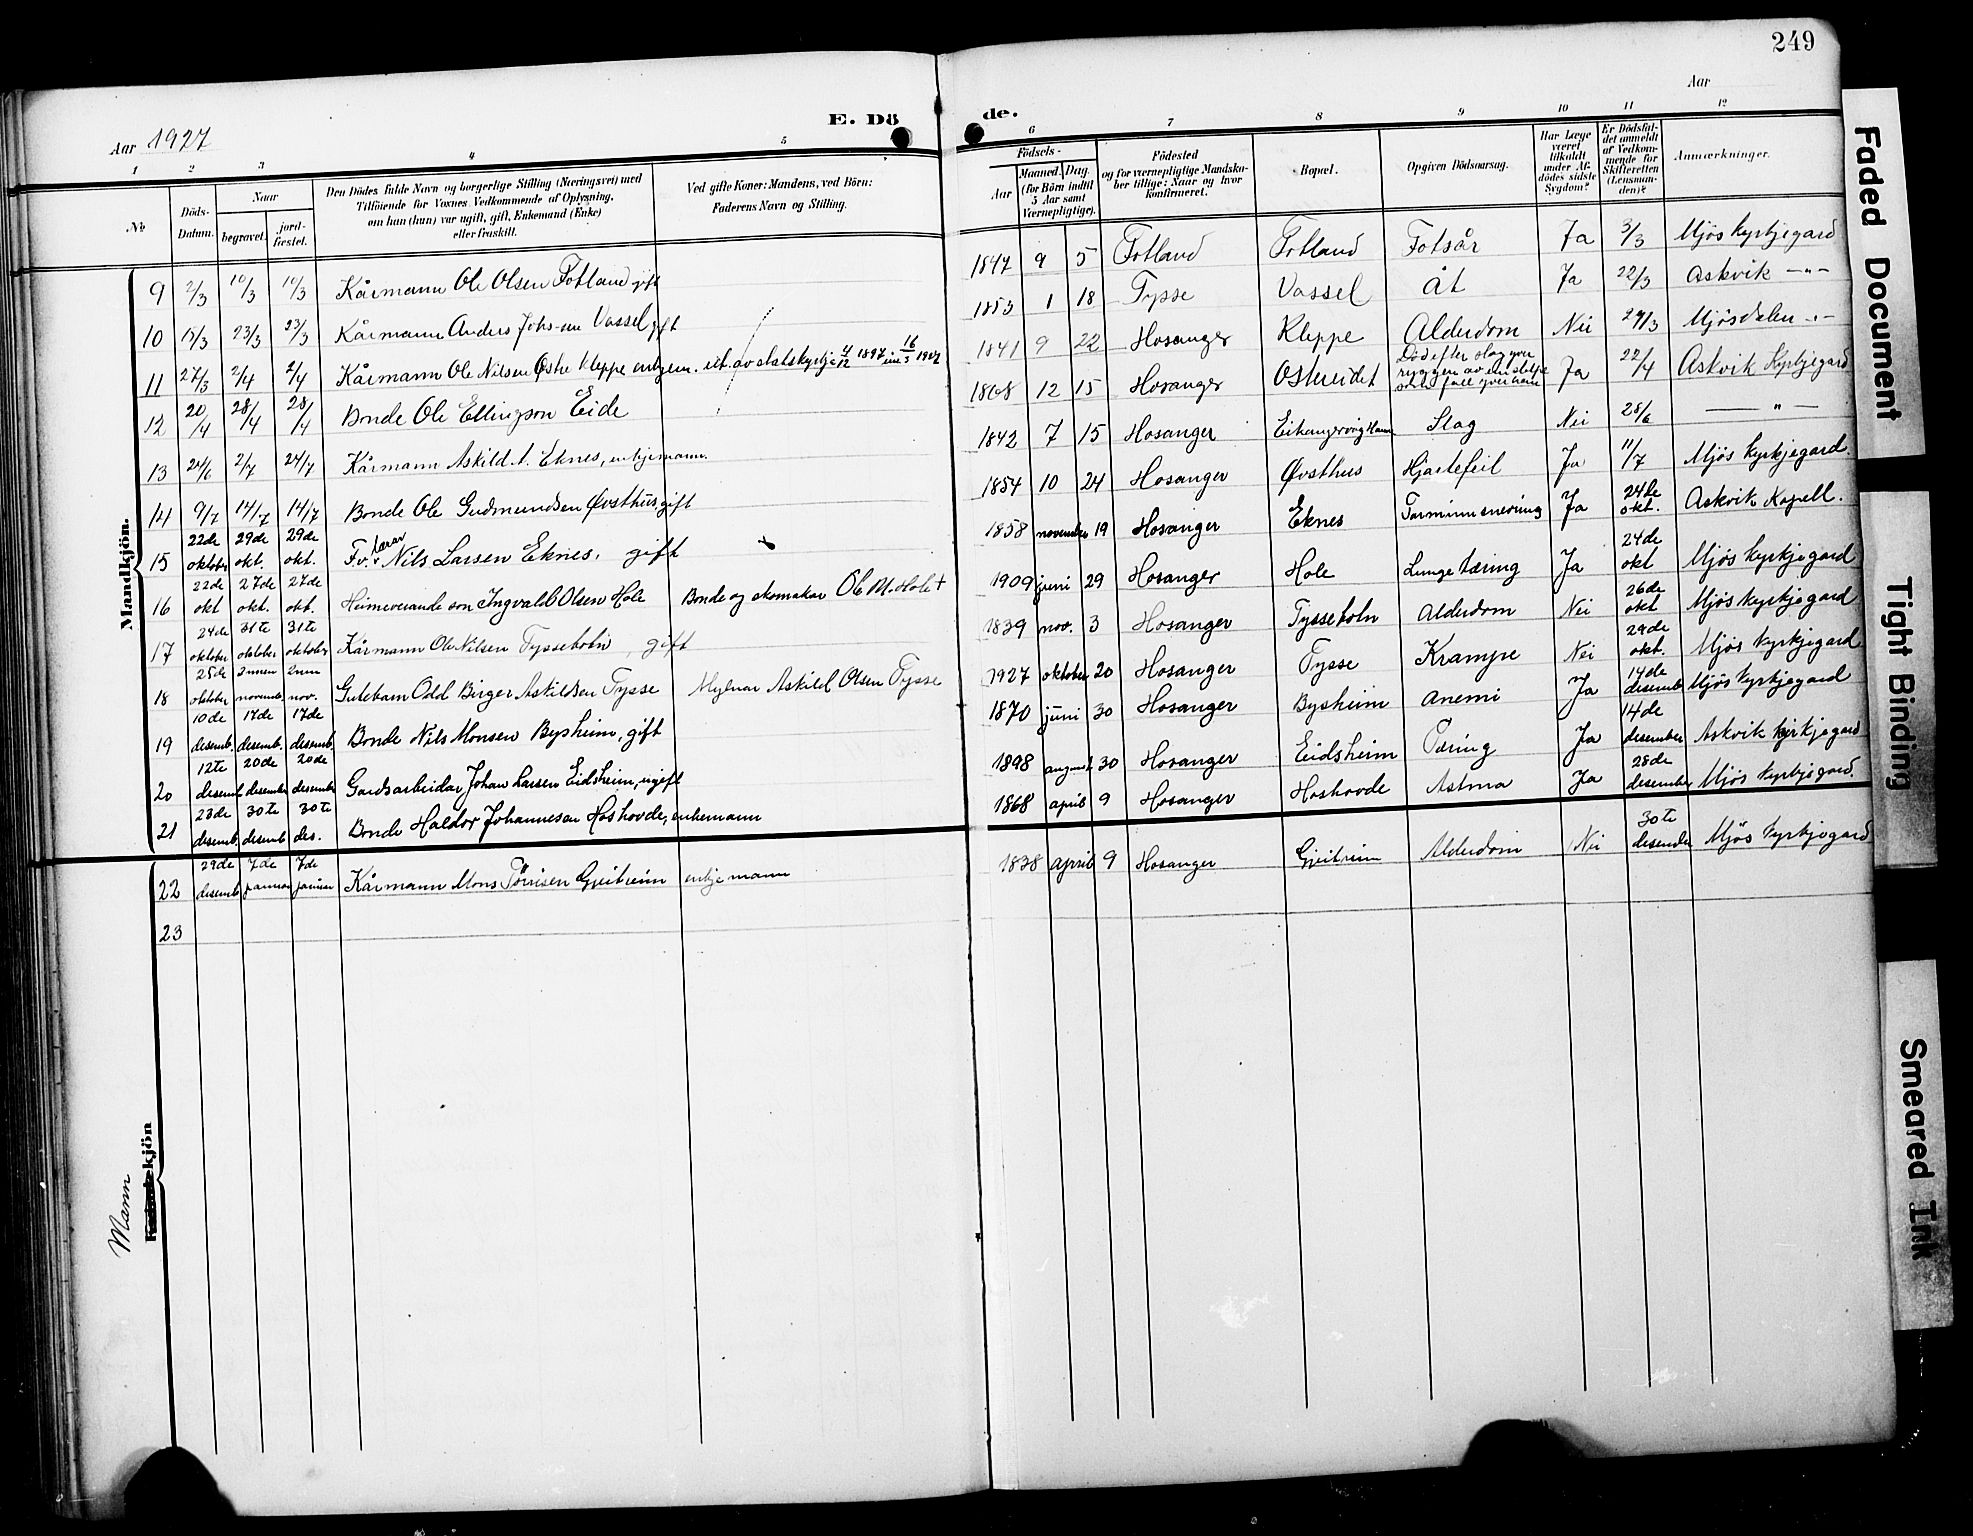 249
Aar 1927
E. Dö
de.
Aar
1 2 3 4 5
6 7 8 9 10 11 12
№
Döds-
Datum.
Naar
begravet.
jord-
fæstet.
Den Dödes fulde Navn og borgerlige Stilling (Næringsvei) med
Tilföiende for Voxnes Vedkommende af Oplysning,
om han (hun) var ugift, gift, Enkemand (Enke)
eller fraskilt.
Ved gifte Koner: Mandens, ved Börn:
Faderens Navn og Stilling.
Födsels-
Aar
Maaned. Dag.
(for Börn indtil
5 Aar samt
Værnepligtige).
Födested
og for værnepligtige Mandska-
ber tillige: Naar og hvor
konfirmeret.
Bopæl.
Opgiven Dödsaarsag.
Har Læge
været
tilkaldt
under Af-
dödes sidste
Sygdom?
Er Dödsfal-
det anmeldt
af Vedkom-
mende for
Skifteretten
(Lensman-
den)?
Anmærkninger.
Mandkjön.
9 2/3 10/3 10/3 Kårmann Ole Olsen Fotland gift 1847 9 5 Fotland Fotland Fotsår Ja 3/3 Mjøs kyrkjegard
10 15/3 23/3 23/3 Kårmann Anders Johs-sen Vassel gift 1853 1 18 Tysse Vassel Åt Ja 22/3 Askvik -"-
11 27/3 2/4 2/4 Kårmann Ole Nilsen Østre Kleppe enkjem. ut. av statskyrkje 4/12 1897 inn 16/3 1902 1841 9 22 Hosanger Kleppe Alderdom Nei 29/3 Mjøsdalen -"-
12 20/4 28/4 28/4 Bonde Ole Ellingson Eide 1868 12 15 Hosanger Ostereidet Død efter slag yver
ryggen av ein stolpe
som fall yver han Ja 22/4 Askvik Kyrkjegard
13 24/6 2/7 24/7 Kårmann Askild A. Eknes, enkjemann. 1842 7 15 Hosanger Eikangervåg Slag Nei 28/6 — " —
14 9/7 14/7 14/7 Bonde Ole Gudmundsen Øvsthus, gift 1854 10 24 Hosanger Øvsthus Hjartefeil Ja 11/7 Mjøs Kyrkjegard.
15 22de oktober 29de okt. 29de okt. F.v. lærar Nils Larsen Eknes, gift 1858 november 19 Hosanger Eknes Tarminnsnevring Ja 24de okt. Askvik Kapell.
16 22de okt 27de okt. 27de okt. Heimeverande son Ingvald Olsen Hole Bonde og skomakar Ole M. Hole + 1909 juni 29 Hosanger Hole Lungetæring Ja 24de okt Mjøs Kyrkjegard
17 24de oktober 31te oktober 31te oktober Kårmann Ole Nilsen Tysseholm, gift 1839 nov. 3 Hosanger Tysseholm Alderdom Nei 26de okt Mjøs Kyrkjegard
18 28de oktober 2nnen november 2nnen nov. Gutebarn Odd Birger Askildsen Tysse Mylnar Askild Olsen Tysse 1927 oktober 20 Hosanger Tysse Krampe Nei 29de okt. Mjøs Kyrkjegard
19 10de desemb. 17de desemb. 17de desemb. Bonde Nils Monsen Bysheim, gift 1870 juni 30 Hosanger Bysheim Anemi Ja 14de desemb Mjøs Kyrkjegard
20 12te desemb 20de desember 20de desember Gardsarbeidar Johan Larsen Eidsheim, ugift 1898 august 30 Hosanger Eidsheim Tæring Ja 14de desember Askvik kyrkjegard
21 23de desemb. 30te desemb 30te des. Bonde Haldor Johannesen Hoshovde, enkemann 1868 april 9 Hosanger Hoshovde Astma Ja 28de desember Mjøs Kyrkjegard.
22 29de desemb. 7de januar 7de januar Kårmann Mons Tørrisen Gjeitreim enkjemann 1838 april 9 Hosanger Gjeitrim Alderdom Nei 30te desember Mjøs Kyrkjegard
23
Mann
Kvindekjön
Faded Document
Tight Binding
Smeared Ink